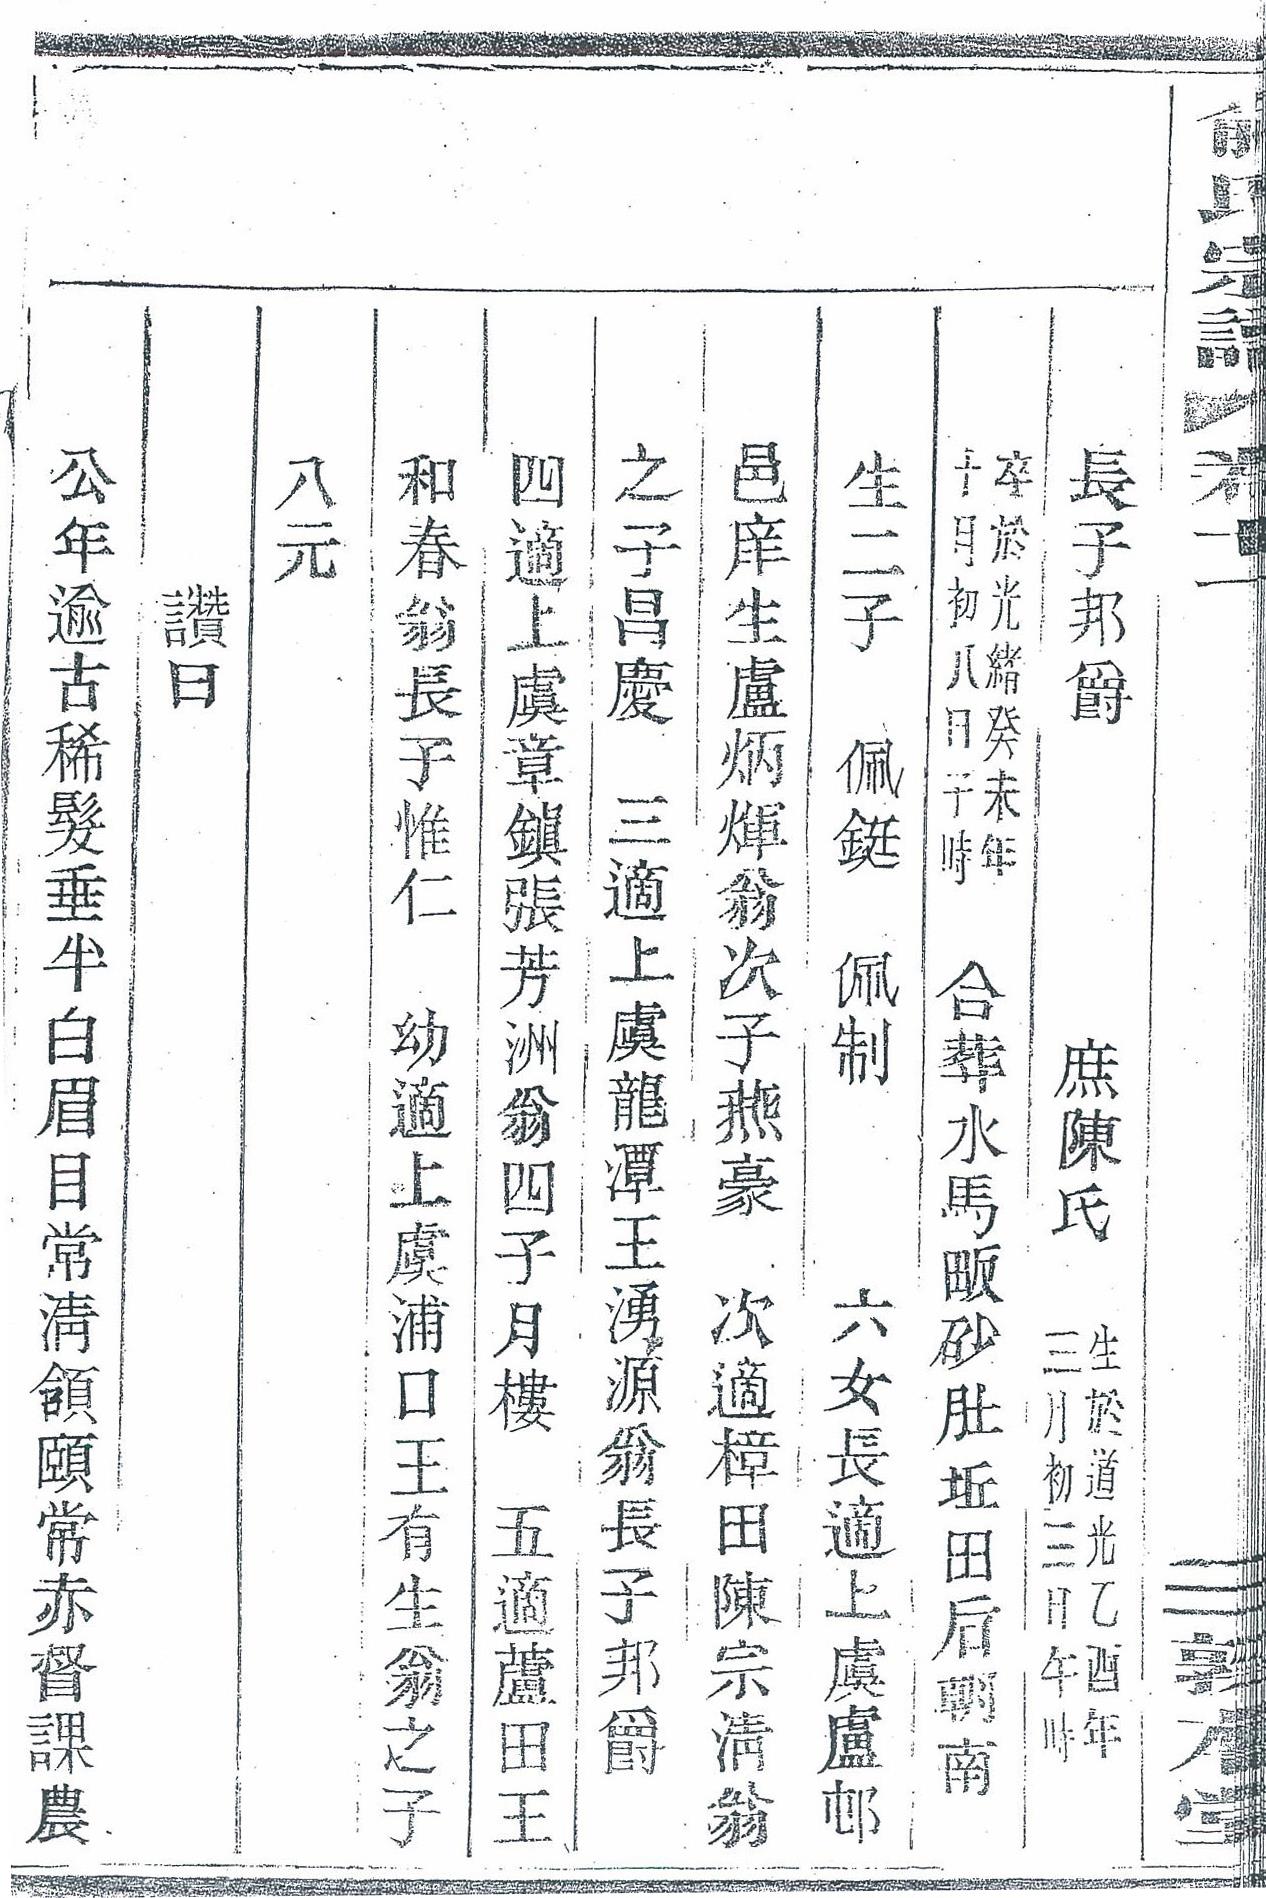 俞氏宗譜 卷十一 敦本堂
長子邦爵 庶陳氏 生於道光乙酉年
三月初三日午時
卒於光緒癸未年
十月初八日子時 合葬水馬畈砂肚坵田后朝南
生二子 佩鋌 佩制 六女長適上虞盧邨
邑庠生盧炳煇翁次子燕豪 次適樟田陳宗淸翁
之子昌慶 三適上虞龍潭王湧源翁長子邦爵
四適上虞章鎭張芳洲翁四子月樓 五適蘆田王
和春翁長子惟仁 幼適上虞浦口王有生翁之子
八元
讚曰
公年逾古稀髮垂半白眉目常淸頷頤常赤督課農